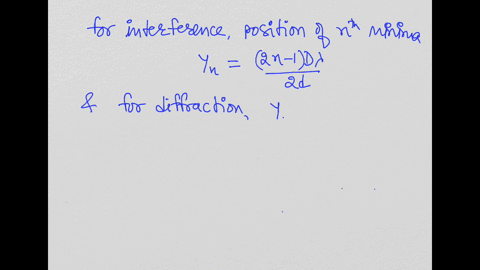 for interference, position of nth minima
Yn = (2n-1)Dλ / 2d
& for diffraction, Y